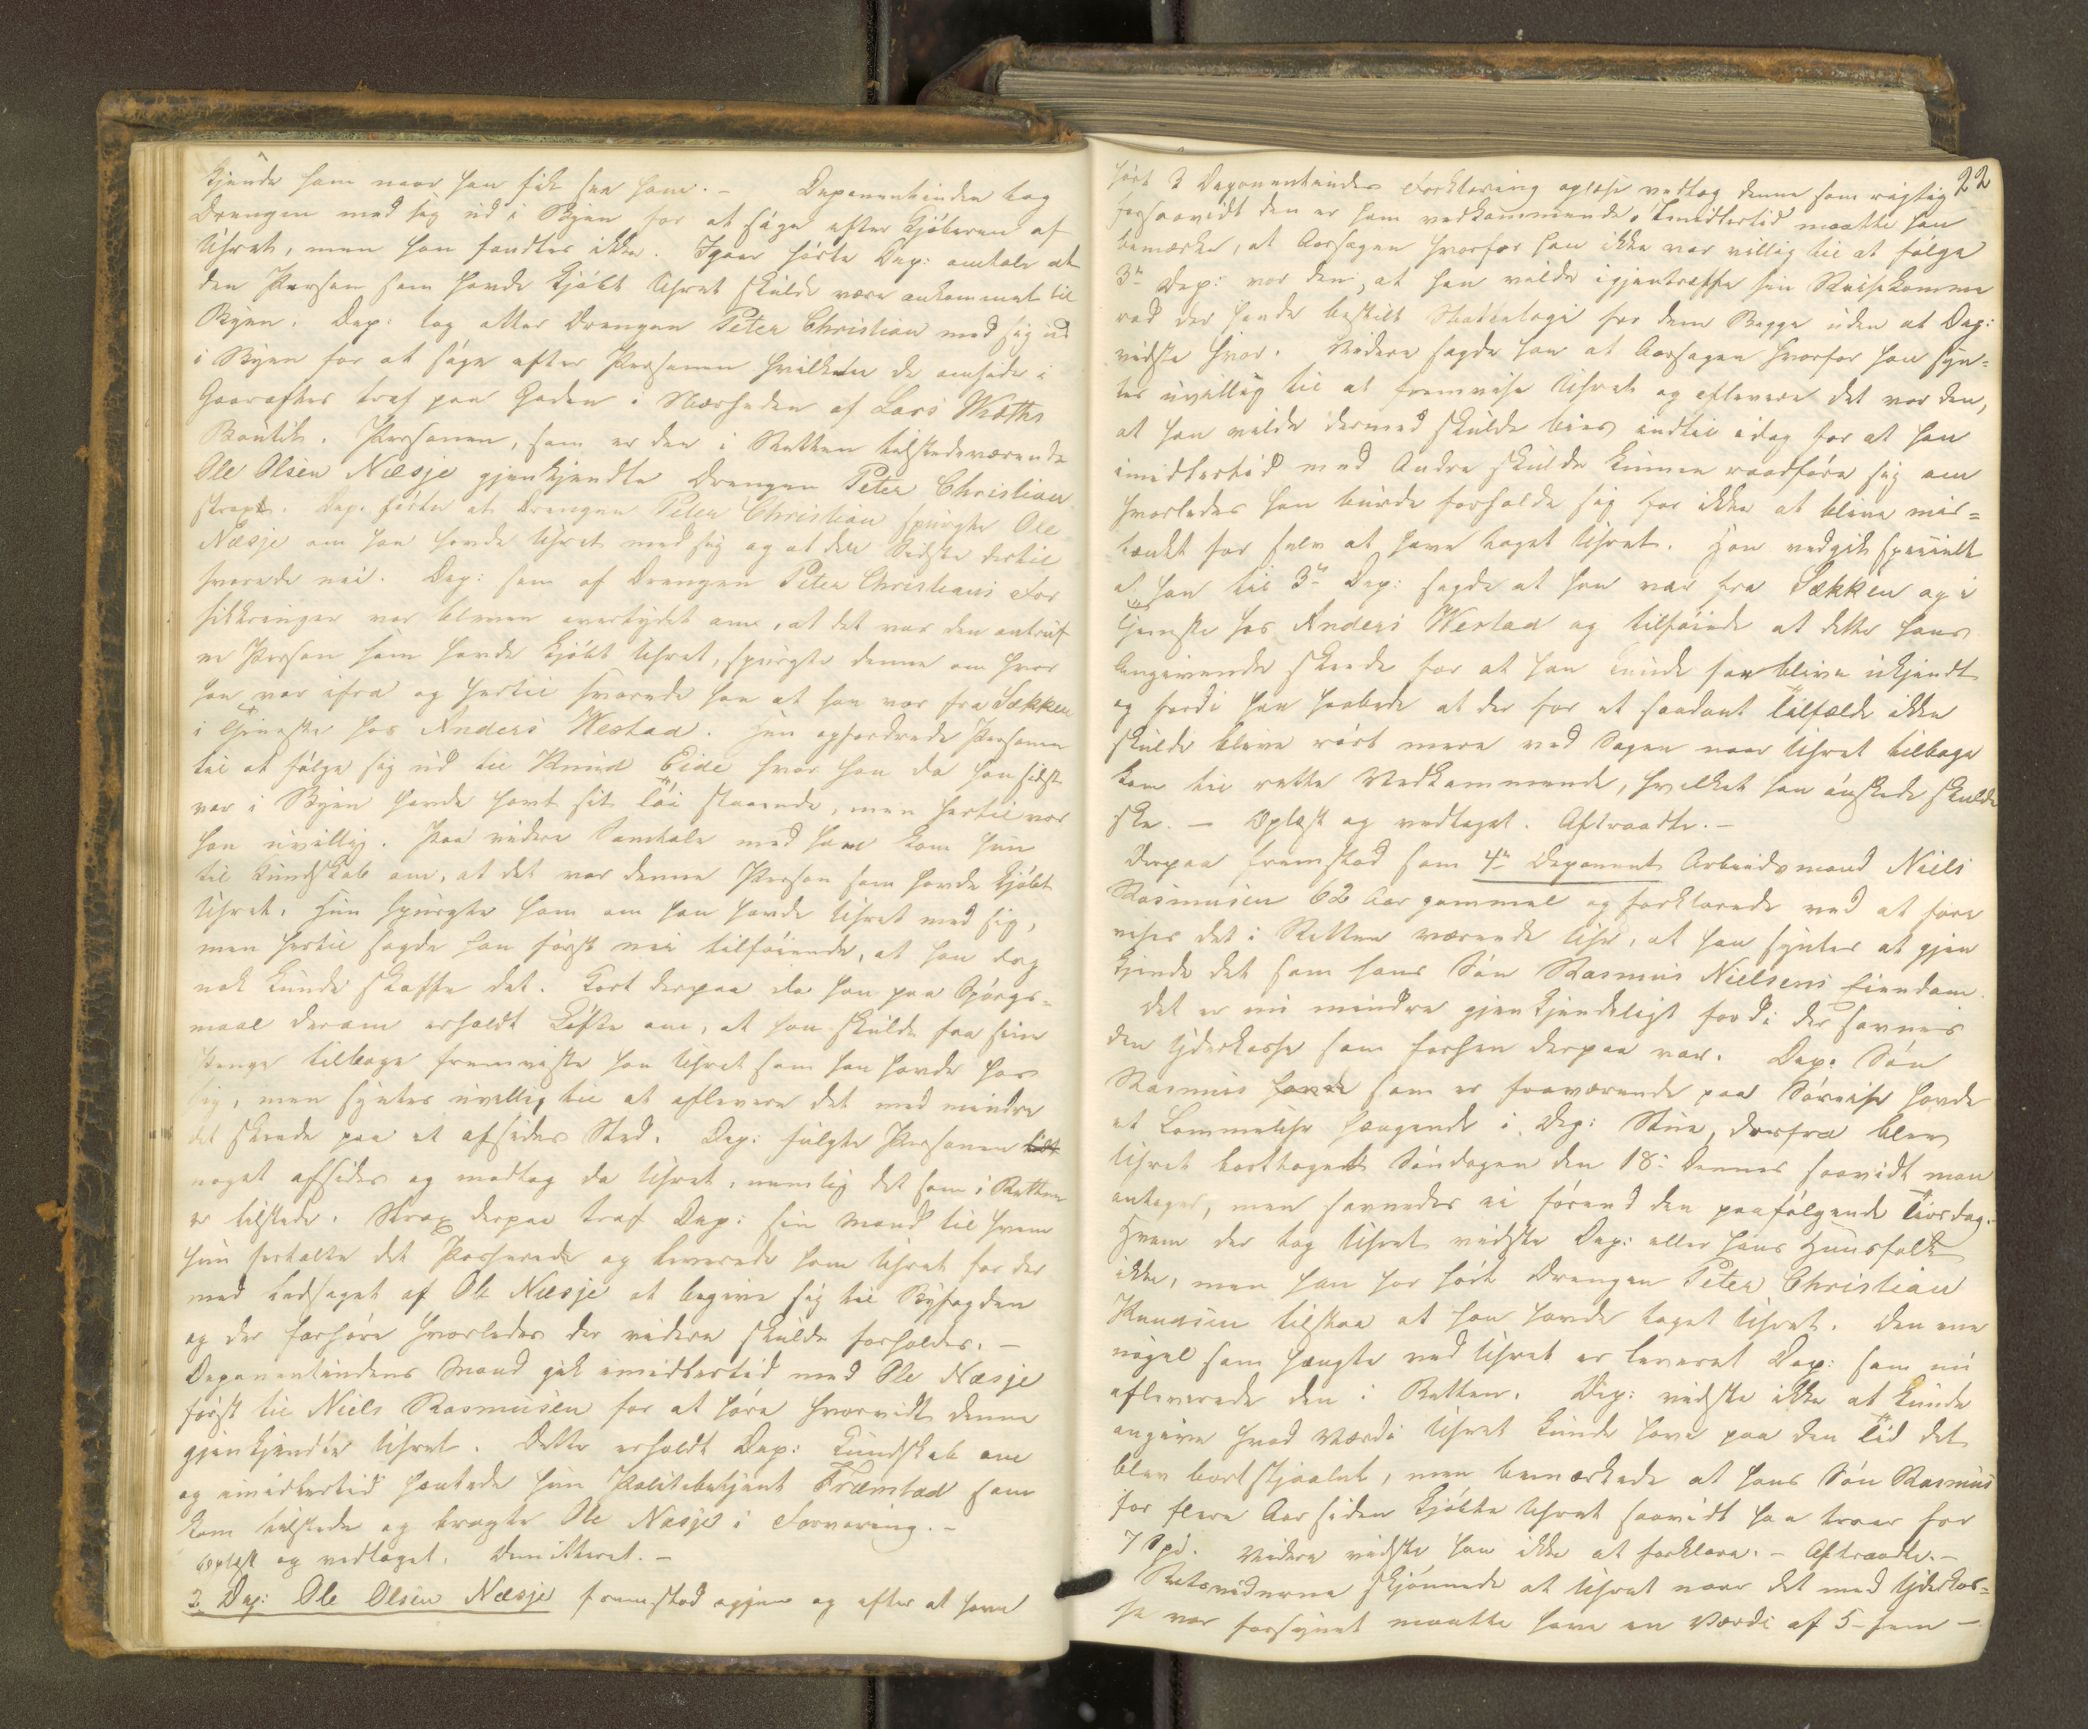 kjende ham naar han fik see ham. – Deponentinden tog
Drengen med sig ud i Byen for at søge efter Kjøberen af
Uhret, men han fandtes ikke. Igaar hørte Dep: omtale at
den Person som havde kjøbt Uhret skulde være ankommet til
Byen. Dep: tog atter Drengen Peter Christian med sig ud
i Byen for at søge efter Personen hvilken de omsider i
Gaaraftes traf paa Gaden i Nærheden af Lars Wæths
Boutik. Personen, som er den i Retten tilstedeværende
Ole Olsen Næsje gjenkjendte Drengen Peter Christian
strax. Dep. hørte at Drengen Peter Christian spurgte Ole
Næsje om han havde Uhret med sig og at den Sidste dertil
svarede nei. Dep: som af Drengen Peter Christians For
sikkringer var bleven overtydet om, at det var den antruf
ne Person som havde kjøbt Uhret, spurgte denne om hvor
han var ifra og hertil svarede han at han var fra Sækken
i Tjeneste hos Anders Westad. Hun opfordrede Personen
til at følge sig ud til Knud Eide hvor han da han sidst
var i Byen havde havt sit Tøi staaende, men hertil var
han uvillig. Paa videre Samtale med ham kom hun
til Kundskab om, at det var denne Person som havde kjøbt
Uhret. Hun spurgte ham om han havde Uhret med sig,
men hertil sagde han først nei tilføiende, at han dog
nok kunde skaffe det. Kort derpaa da han paa Spørgs=
maal derom erholdt Løfte om, at han skulde faa sine
Penge tilbage fremviste han Uhret som han havde hos
sig, men syntes uvillig til at aflevere det med mindre
det skeede paa et afsides Sted. Dep: fulgte Personen
noget afsides og modtog da Uhret, nemlig det som i Retten
er tilstede. Strax derpaa traf Dep: sin Mand til hvem
hun fortalte det Passerede og leverede ham Uhret for der
med ledsaget af Ole Næsje at begive sig til Byfogden
og der forhøre hvorledes der videre skulde forholdes. –
Deponentindens Mand gik imidlertid med Ole Næsje
først til Niels Rasmusen for at høre hvorvidt denne
gjenkjendte Uhret. Dette erholdt Dep: Kundskab om
og imidlertid hentede hun Politibetjent Frænstad som
kom tilstede og bragte Ole Næsje i Forvaring. –
Oplæst og vedtaget. Demitteret. –
3 Dep: Ole Olsen Næsje fremstod igjen og efter at have
22
hørt 2 Deponentindes Forklaring oplæse vedtog denne som rigtig
forsaavidt den er ham vedkommende. Imidlertid maatte han
bemærke, at Aarsagen hvorfor han ikke var villig til at følge
3die Dep: var den, at han vilde igjentræffe sin Reisekamme
rad der havde bestilt Natteloge for dem Begge uden at Dep:
vidste hvor. Videre sagde han at Aarsagen hvorfor han syn=
tes uvillig til at fremvise Uhret og aflevere det var den,
at han vilde dermed skulde bies indtil idag for at han
imidlertid med Andre skulde kunne raadføre sig om
hvorledes han burde forholde sig for ikke at blive mis=
tænkt for selv at have taget Uhret. Han vedgik specielt
at han til 3die Dep: sagde at han var fra Sækken og i
Tjeneste hos Anders Westad og tilføiede at dette hans
Angivende skeede for at han kunde faa blive ukjendt
og fordi han haabede at der for et saadant Tilfælde ikke
skulde blive rørt mere ved Sagen naar Uhret tilbage
kom til rette Vedkommende, hvilket han ønskede skulde
ske. – Oplæst og vedtaget. Aftraadte. –
Derpaa fremstod som 4de Deponent Arbeidsmand Niels
Rasmusen 62 Aar gammel og forklarede ved at fore
vises det i Retten værende Uhr, at han syntes at gjen
kjende det som hans Søn Rasmus Nielsens Eiendom.
Det er nu mindre gjenkjendeligt fordi der savnes
den Yderkasse som forhen derpaa var. Dep. Søn
Rasmus havde som er fraværende paa Søreise havde
et Lommeuhr hængende i Dep: Stue, derfra blev
Uhret borttaget Søndagen den 18de Dennes saavidt man
antager, men savnedes ei førend den paafølgende Tiorsdag.
Hvem der tog Uhret vidste Dep: eller hans Huusfolk
ikke, men han har hørt Drengen Peter Christian
Knudsen tilstaa at han havde taget Uhret. Den ene
Nøgel som hængte ved Uhret er leveret Dep: som nu
afleverede den i Retten. Dep: vidste ikke at kunde
angive hvad Værdi Uhret kunde have paa den Tid det
blev bortstjaalet, men bemærkede at hans Søn Rasmus
for flere Aar siden kjøbte Uhret saavidt han troer for
7 Spd. Videre vidste han ikke at forklare. – Aftraadte. –
Retsvidnerne skjønnede at Uhret naar det med Yderkas=
se var forsynet maatte have en Værdi af 5 – fem –